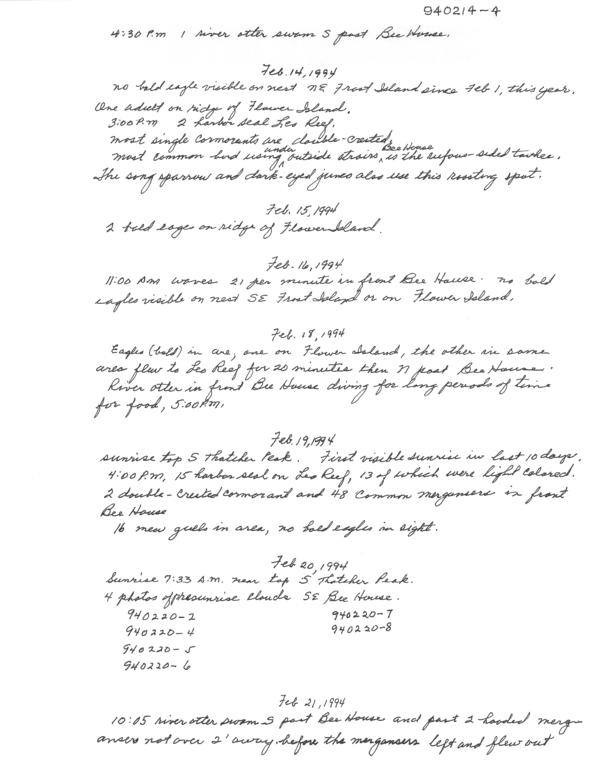 940214-4
4:30 P.m 1 river otter swam S past Bee House.
Feb. 14, 1994
no bald eagle visible on nest NE Frost Island since Feb 1, this year.
One adult on ridge of Flower Island.
3:00 P.M 2 harbor seal Leo Reef.
most single cormorants are double-crested.
most common bird using under outside stairs, Bee House is the rufous-sided towhee.
The song sparrow and dark-eyed junco also use this roosting spot.
Feb. 15, 1994
2 bald eage on ridge of Flower Island.
Feb. 16, 1994
11:00 Am waves 21 per minute in front Bee House. no bald
eagles visible on nest SE Frost Island or on Flower Island.
Feb. 18, 1994
Eagles (bald) in are, one on Flower Island, the other in same
area flew to Leo Reef for 20 minutes then N past Bee House.
River otter in front Bee House diving for long periods of time
for food, 5:00 P.m.
Feb. 19, 1994
sunrise top S Thatcher Peak. First visible sunrise in last 10 days.
4:00 P.M, 15 harbor seal on Leo Reef, 13 of which were light colored.
2 double-crested cormorant and 48 common mergansers in front
Bee House
16 mew gulls in area, no bald eagles in sight.
Feb 20, 1994
Sunrise 7:33 A.M. near top S Thatcher Peak.
4 photos of presunrise clouds SE Bee House.
940220-2 940220-7
940220-4 940220-8
940220-5
940220-6
Feb 21, 1994
10:05 river otter swam S past Bee House and past 2 hooded merg-
ansers not over 2' away before the mergansers left and flew out